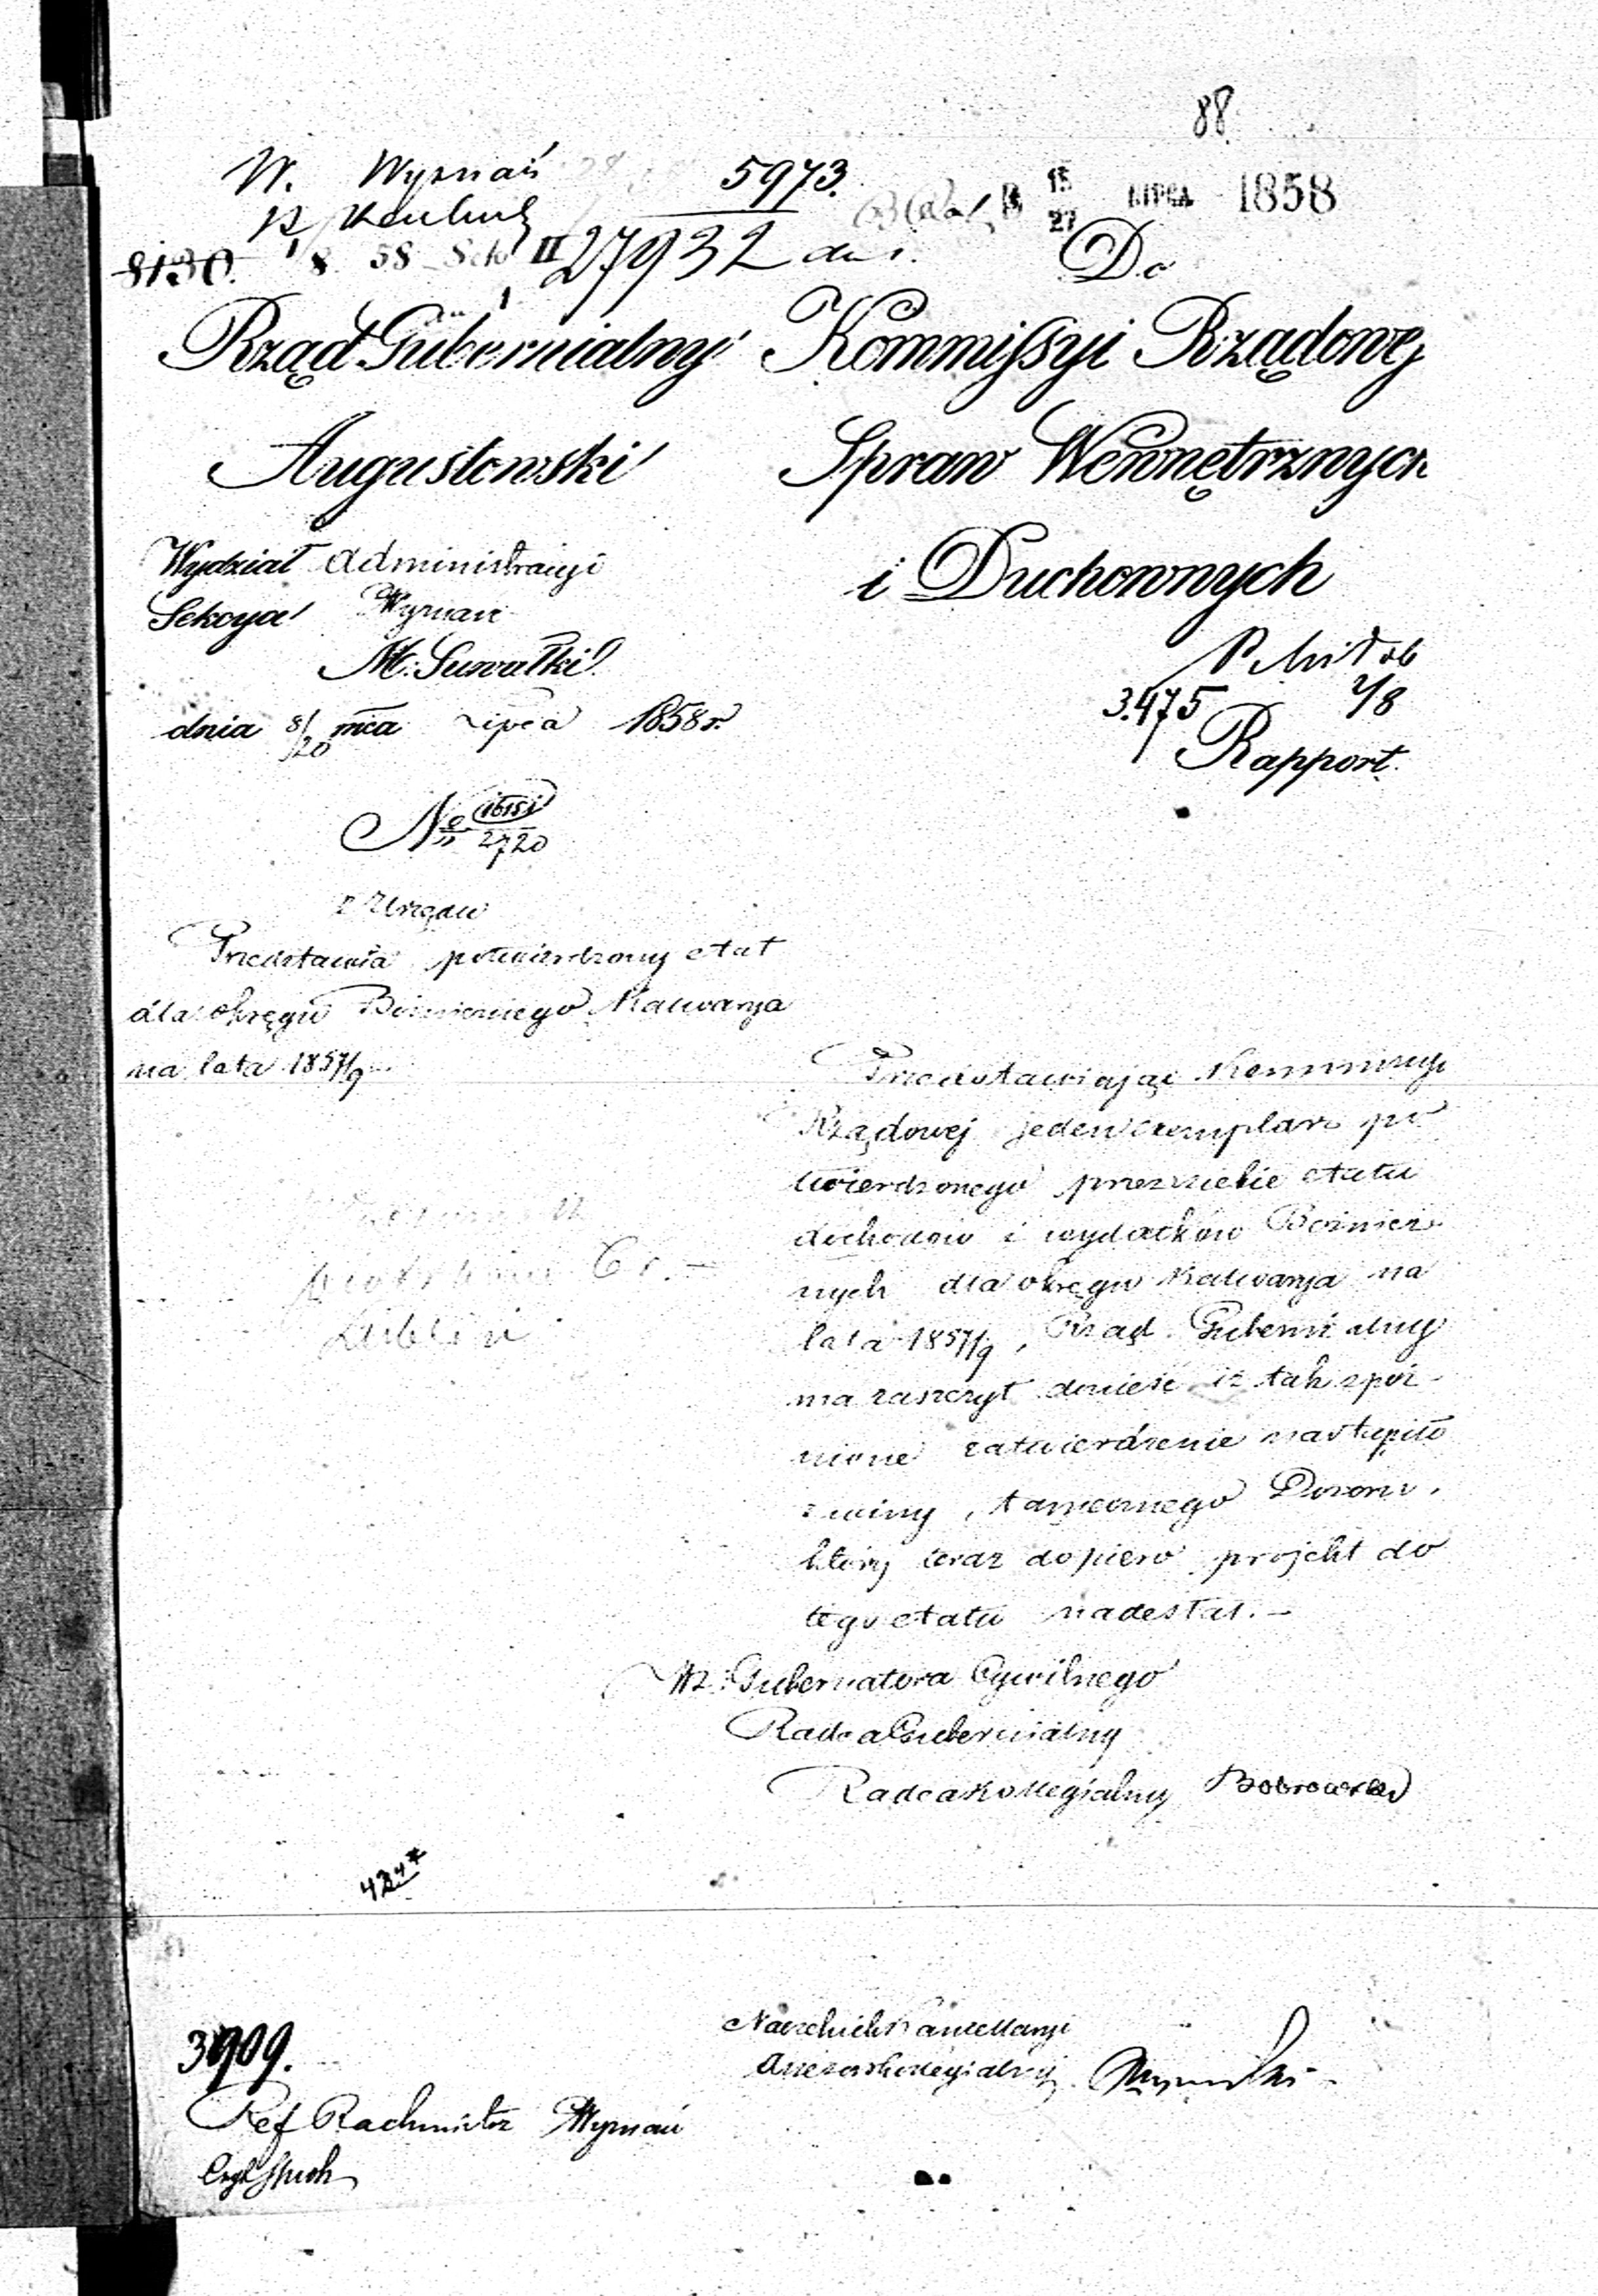 88.
W. Wyznań
5973.
15
27 LIPCA 1858
8130. 58 Sek II 27932
Do
Rząd Gubernialny
Augustowski
Kommissyi Rządowej
Spraw Wewnętrznych
i Duchownych
Wydział Administracyi
Sekcya Wyznań
M. Suwałki
dnia 8/20 mca Lipca 1858 r.
3475 2/8
Rapport.
No 2720
z Urzędu
Przedstawia potwierdzony etat
dla okręgu Bożniczego Kalwarya
na lata 1857/9
Przedstawiając Kommissyi
Rządowej jeden exemplarz po
twierdzonego przez siebie etatu
dochodów i wydatków Bożnicz
nych dla okręgu Kalwarya na
lata 1857/9, Rząd Gubernialny
ma zaszczyt donieść iż tak spóź
nione zatwierdzenie nastąpiło
z winy tamecznego Dozoru,
który teraz dopiero projekt do
tego etatu nadesłał. –
Lublin
Wz. Gubernatora Cywilnego
Radca Gubernialny
Radca Kollegialny Bobrowski
Naczelnik Kancellaryi
Assessor Kollegialny
3909.
Ref Rachmistrz Wyznań